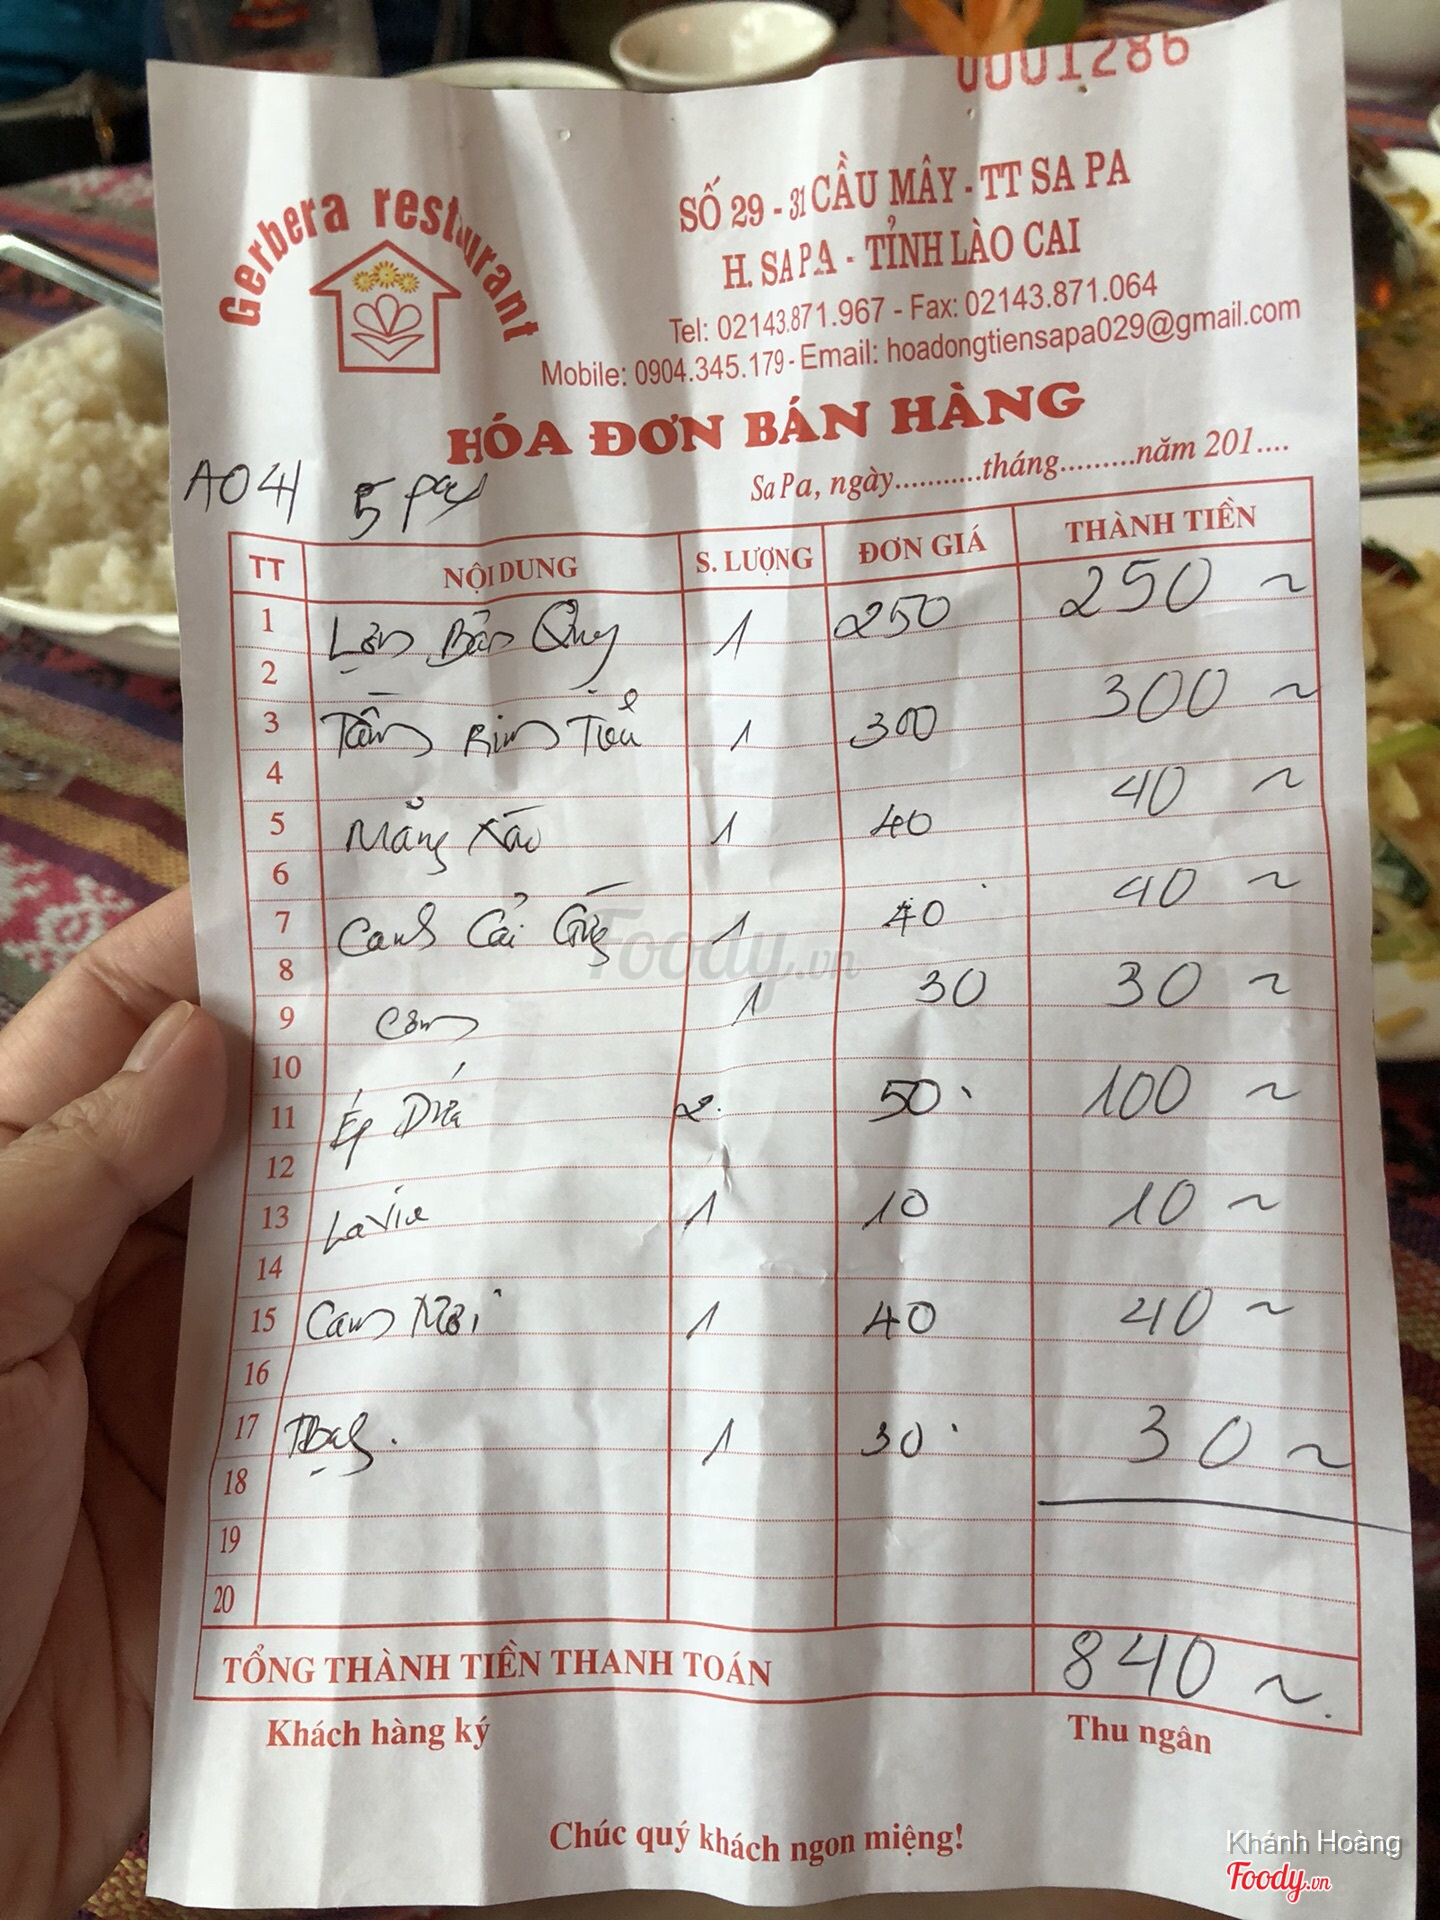 0001286
Gerbera restaurant
SỐ 29 - 31 CẦU MÂY - TT SA PA
H. SA PA - TỈNH LÀO CAI
Tel: 02143.871.967 - Fax: 02143.871.064
Mobile: 0904.345.179 - Email: hoadongtiensapa029@gmail.com
HÓA ĐƠN BÁN HÀNG
Sa Pa, ngày...........tháng.........năm 201....
A04 5 pax
TT NỘI DUNG S. LƯỢNG ĐƠN GIÁ THÀNH TIỀN
1 Lợn Bản Quay 1 250 250 ~
2
3 Tầm Rim Tiêu 1 300 300 ~
4
5 Măng Xào 1 40 40 ~
6
7 Canh Cải Gừng 1 40 40 ~
8
9 Cơm 1 30 30 ~
10
11 Ép Dứa 2 50 100 ~
12
13 Lavie 1 10 10 ~
14
15 Cam 1 40 40 ~
16
17 1 30 30 ~
18
19
20
TỔNG THÀNH TIỀN THANH TOÁN 840 ~
Khách hàng ký Thu ngân
Chúc quý khách ngon miệng!
Foody.vn
Khánh Hoàng
Foody.vn